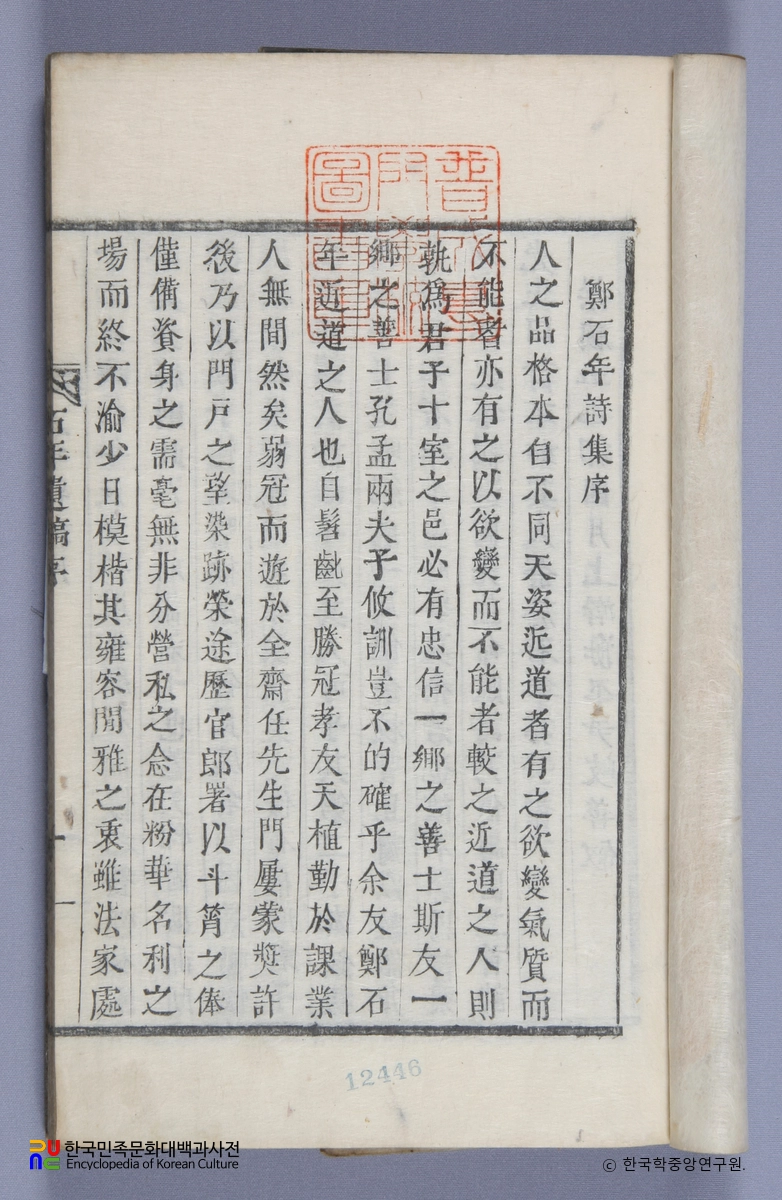 鄭石年詩集序
人之品格本自不同天姿近道者有之欲變氣質而
不能者亦有之以欲變而不能者較之近道之人則
孰爲君子十室之邑必有忠信一鄉之善士斯友一
鄉之善士孔孟兩夫子攸訓豈不的確乎余友鄭石
年近道之人也自髫齔至勝冠孝友天植勤於課業
人無間然矣弱冠而遊於全齋任先生門屢蒙奬許
後乃以門戶之望染跡榮途歷官郎署以斗筲之俸
僅備資身之需毫無非分營私之念在粉華名利之
場而終不渝少日模楷其雍容閒雅之衷雖法家處
石年遺稿序
一
12446
한국민족문화대백과사전
Encyclopedia of Korean Culture
© 한국학중앙연구원.